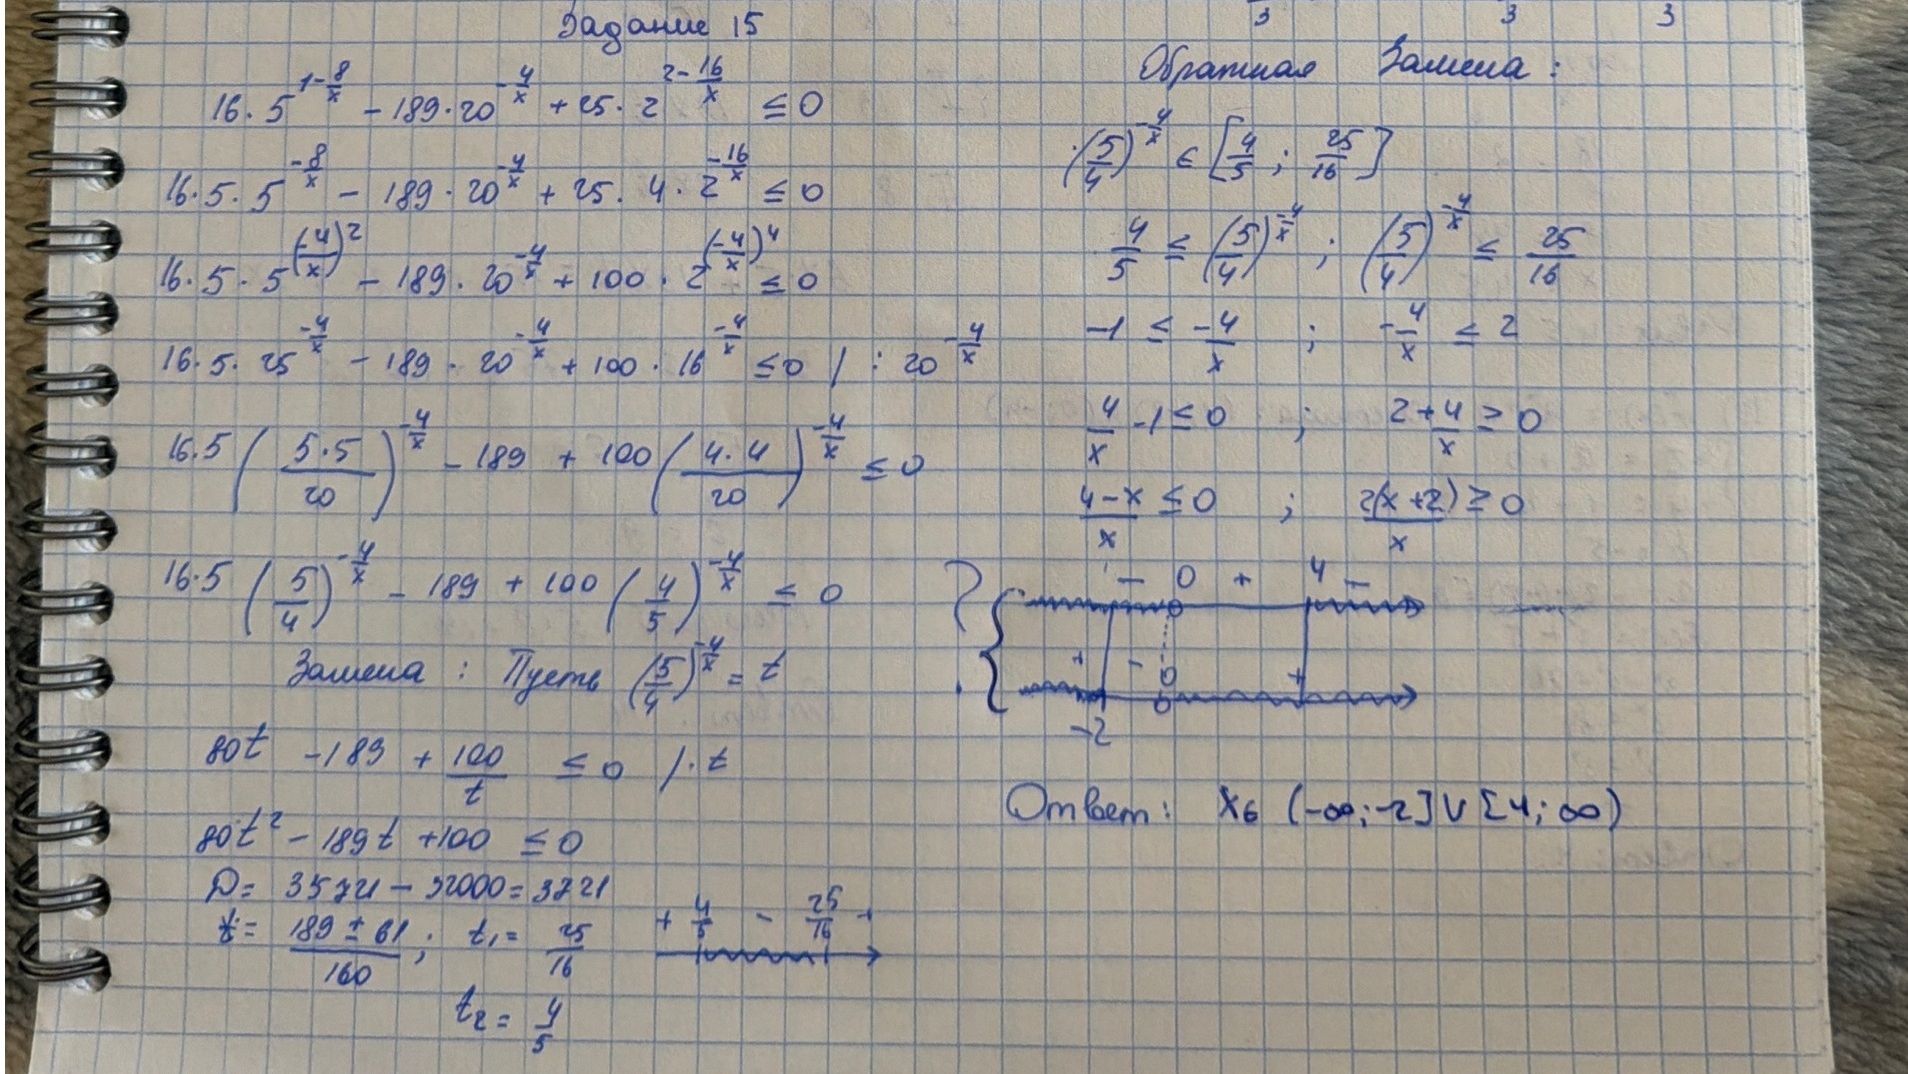 Задание 15
16·5^(1-8/x) - 189·20^(-4/x) + 25·2^(2-16/x) ≤ 0
16·5·5^(-8/x) - 189·20^(-4/x) + 25·4·2^(-16/x) ≤ 0
16·5·5^(-4/x)^2 - 189·20^(-4/x) + 100·2^(-4/x)^4 ≤ 0
16·5·25^(-4/x) - 189·20^(-4/x) + 100·16^(-4/x) ≤ 0 | : 20^(-4/x)
16·5(5·5/20)^(-4/x) - 189 + 100(4·4/20)^(-4/x) ≤ 0
16·5(5/4)^(-4/x) - 189 + 100(4/5)^(-4/x) ≤ 0
Замена: Пусть (5/4)^(-4/x) = t
80t - 189 + 100/t ≤ 0 | ·t
80t² - 189t + 100 ≤ 0
D = 35721 - 32000 = 3721
t = (189 ± 61)/160 ; t₁ = 25/16
t₂ = 4/5
+ 4/5 - 25/16 +
3 3 3
Обратная Замена:
(5/4)^(-4/x) ∈ [4/5 ; 25/16]
4/5 ≤ (5/4)^(-4/x) ; (5/4)^(-4/x) ≤ 25/16
-1 ≤ -4/x ; -4/x ≤ 2
4/x - 1 ≤ 0 ; 2 + 4/x ≥ 0
(4-x)/x ≤ 0 ; 2(x+2)/x ≥ 0
- 0 + 4 -
+ - 0 +
-2
Ответ: x ∈ (-∞; -2] ∪ [4; ∞)